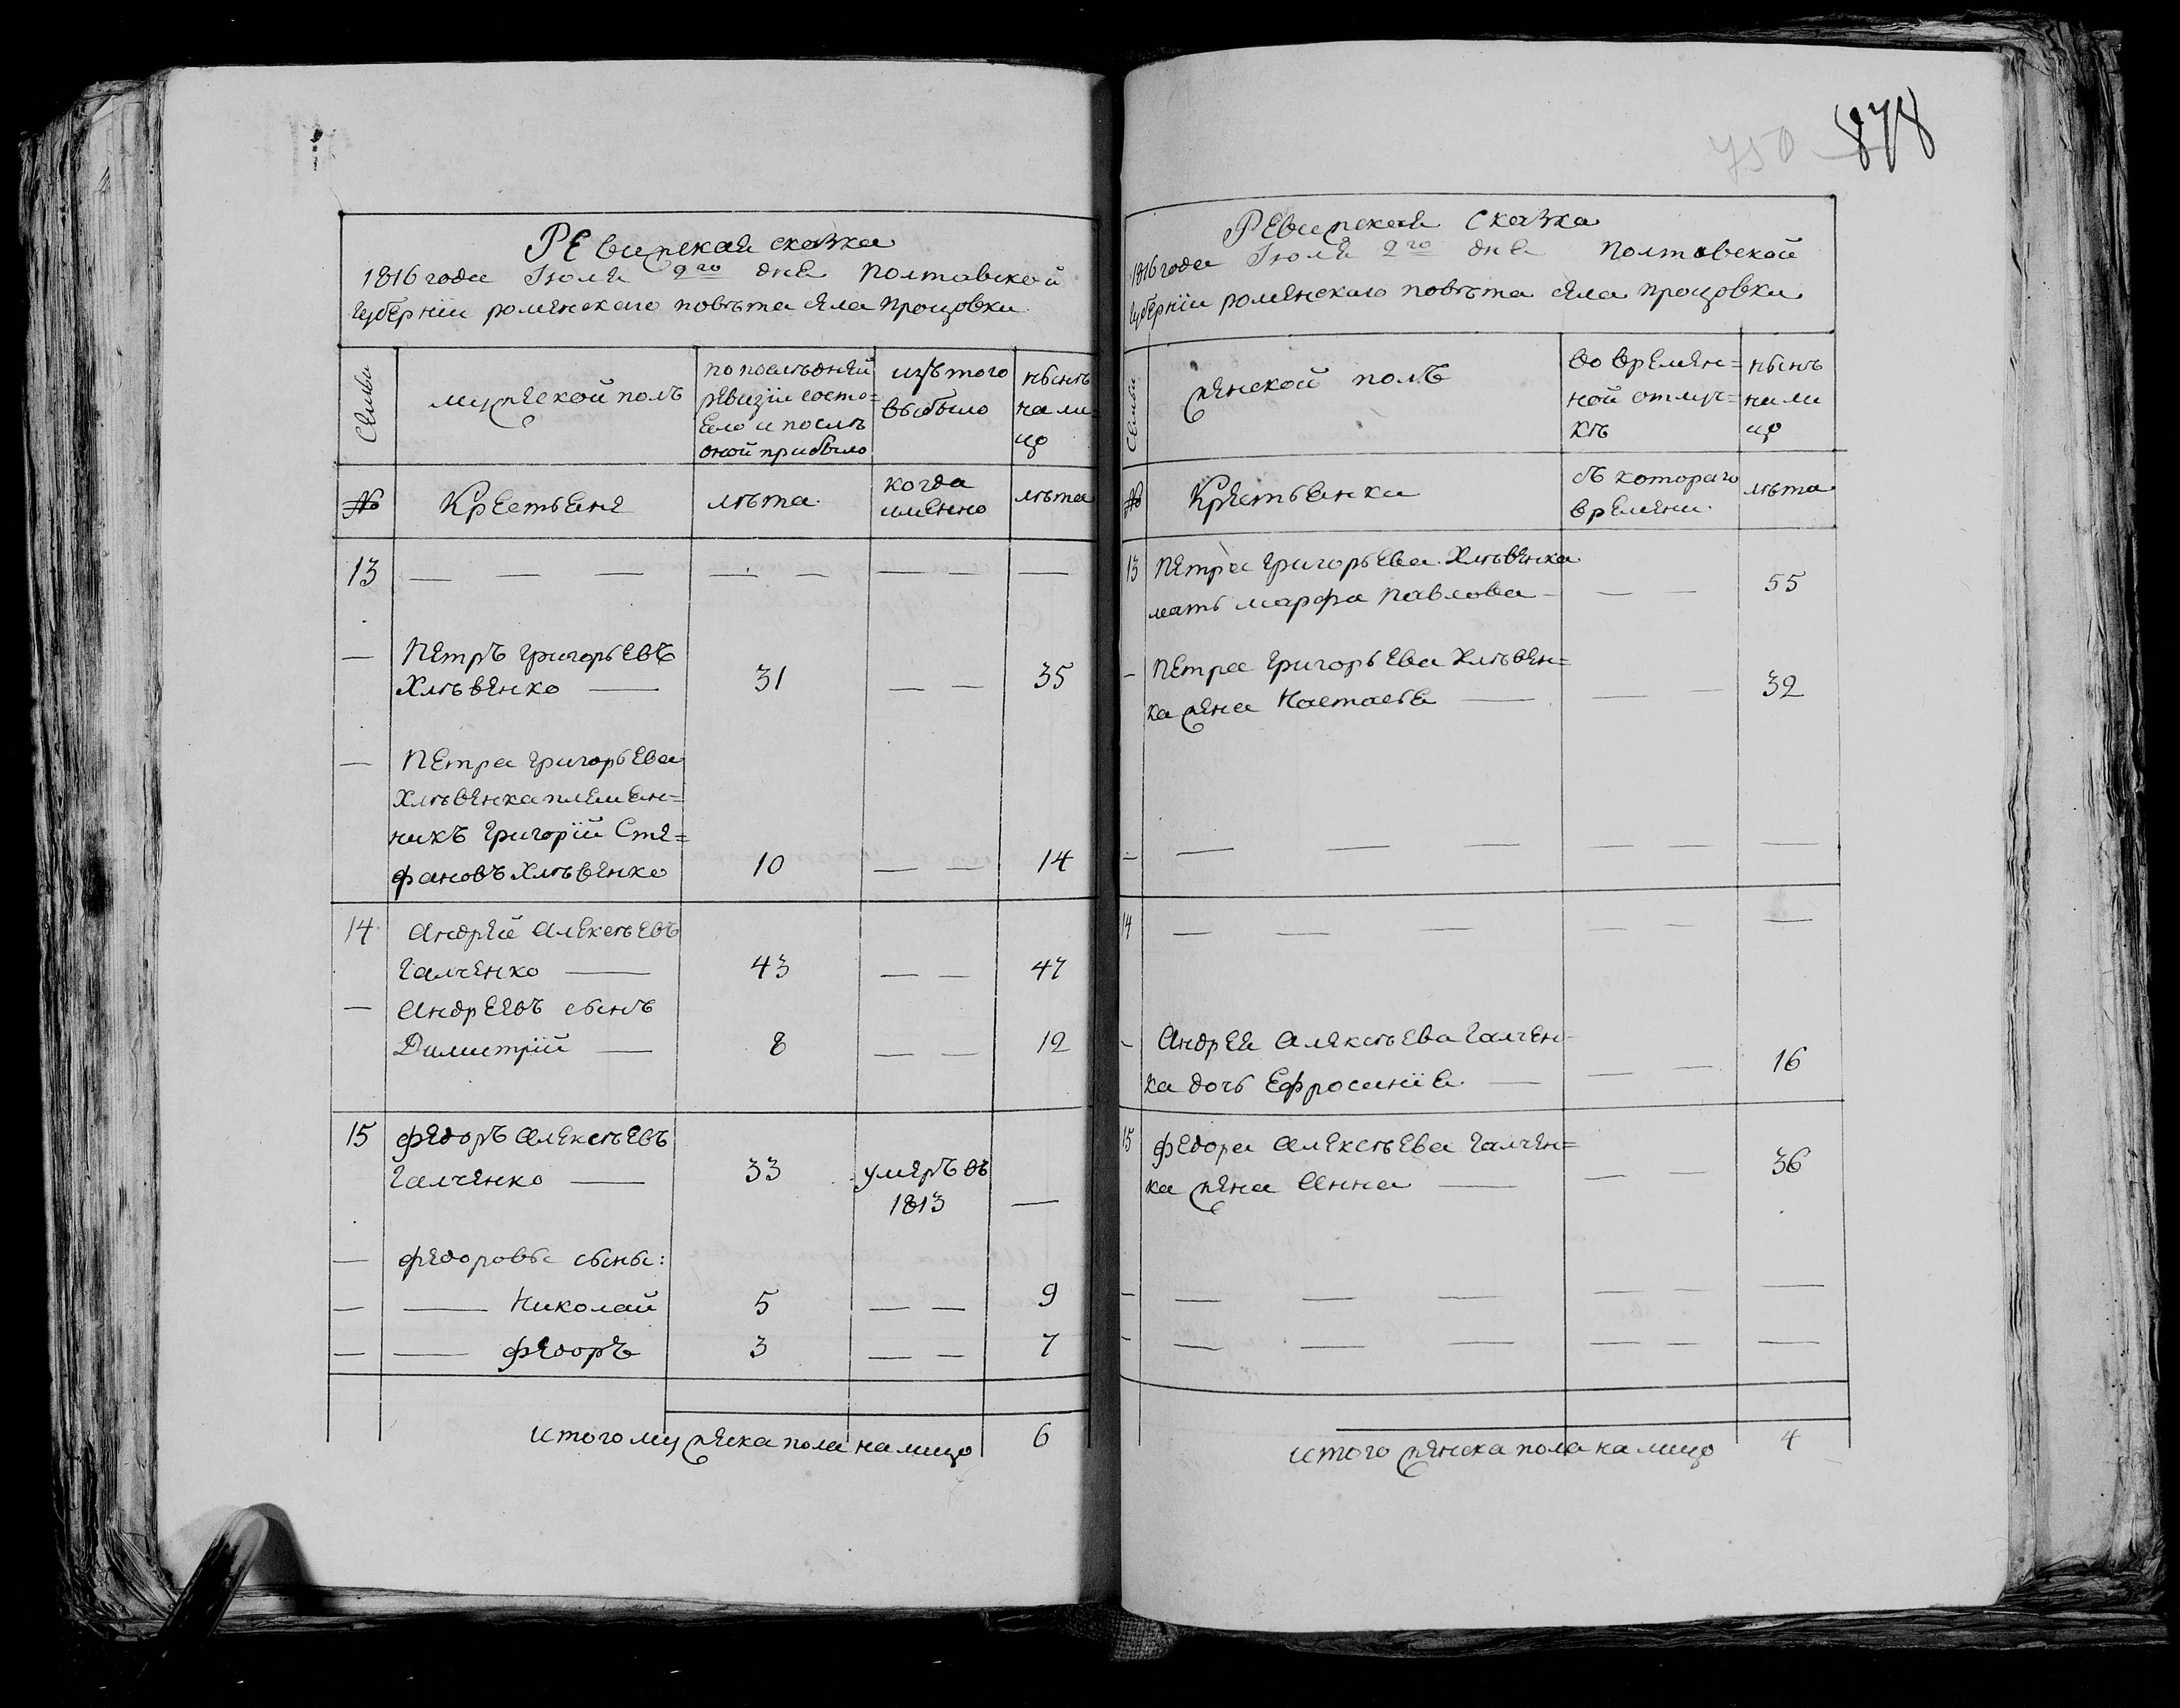 Ревижская сказка
1816 года Іюля 2го дня Полтавской
Губерніи роменскаго повѣта села процовки
Семьи
мужеской полъ
по послѣдней
ревизіи состо=
яло и послѣ
оной прибыло
изъ того
выбыло
нынѣ
на ли=
цо
№
Крестьяня
лѣта
когда
именно
лѣта
13
— Петръ григорьевъ
Хлѣвенко — 31 — — 35
— Петра григорьева
Хлѣвенка племян=
никъ григорій Сте=
фановъ Хлѣвенко 10 — — 14
14 Андрей Алексѣевъ
Галченко — 43 — — 47
— Андреевъ сынъ
Димитрій — 8 — — 12
15 федоръ Алексѣевъ
Галченко — 33 умеръ въ
1813 —
— федоровы сыны:
— — Николай 5 — — 9
— — федоръ 3 — — 7
итого мужеска пола на лицо 6
750 878
Ревижская Сказка
1816 года Іюля 2го дня Полтавской
Губерніи роменскаго повѣта села процовки
Семьи
женской полъ
во времян=
ной отлуч=
кѣ
нынѣ
на ли
цо
№
Крестьянки
съ котораго
времени
лѣта
13 Петра григорьева Хлѣвенка
мать марфа павлова — — — 55
— Петра григорьева Хлѣвен=
ка жена Настасья — — — 32
14
— Андрея Алексѣева Галчен=
ка дочь Ефросинія — — — 16
15 федора Алексѣева галчен=
ка жена Анна — — — 36
итого женска пола на лицо 4